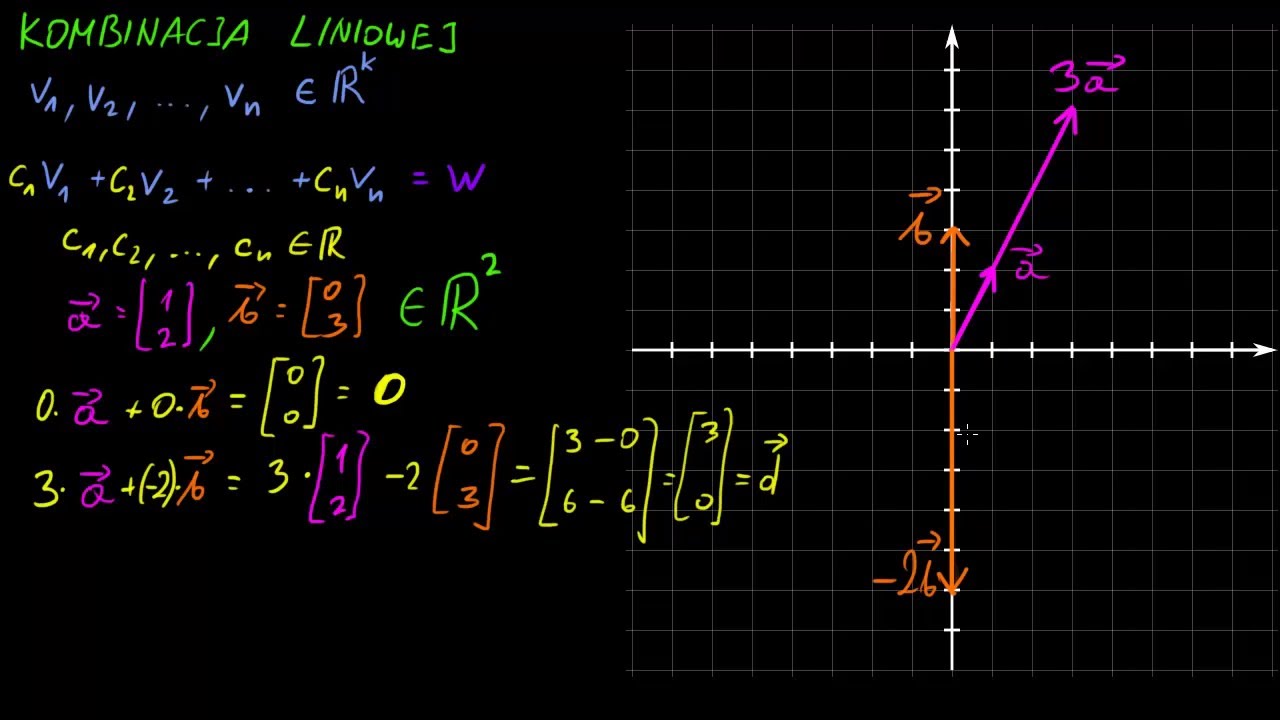 KOMBINACJA LINIOWEJ
v₁, v₂, ..., vₙ ∈ ℝᵏ
c₁v₁ + c₂v₂ + ... + cₙvₙ = w
c₁, c₂, ..., cₙ ∈ ℝ
a⃗ = [1 2], b⃗ = [0 3] ∈ ℝ²
0·a⃗ + 0·b⃗ = [0 0] = 0
3·a⃗ + (-2)·b⃗ = 3·[1 2] - 2[0 3] = [3 - 0 6 - 6] = [3 0] = d⃗
3a⃗
b⃗
a⃗
-2b⃗